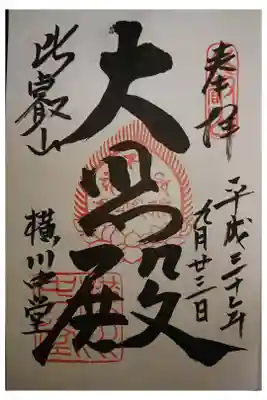 奉拝
平成二十七年
九月廿三日
大悲殿
比叡山
横川中堂